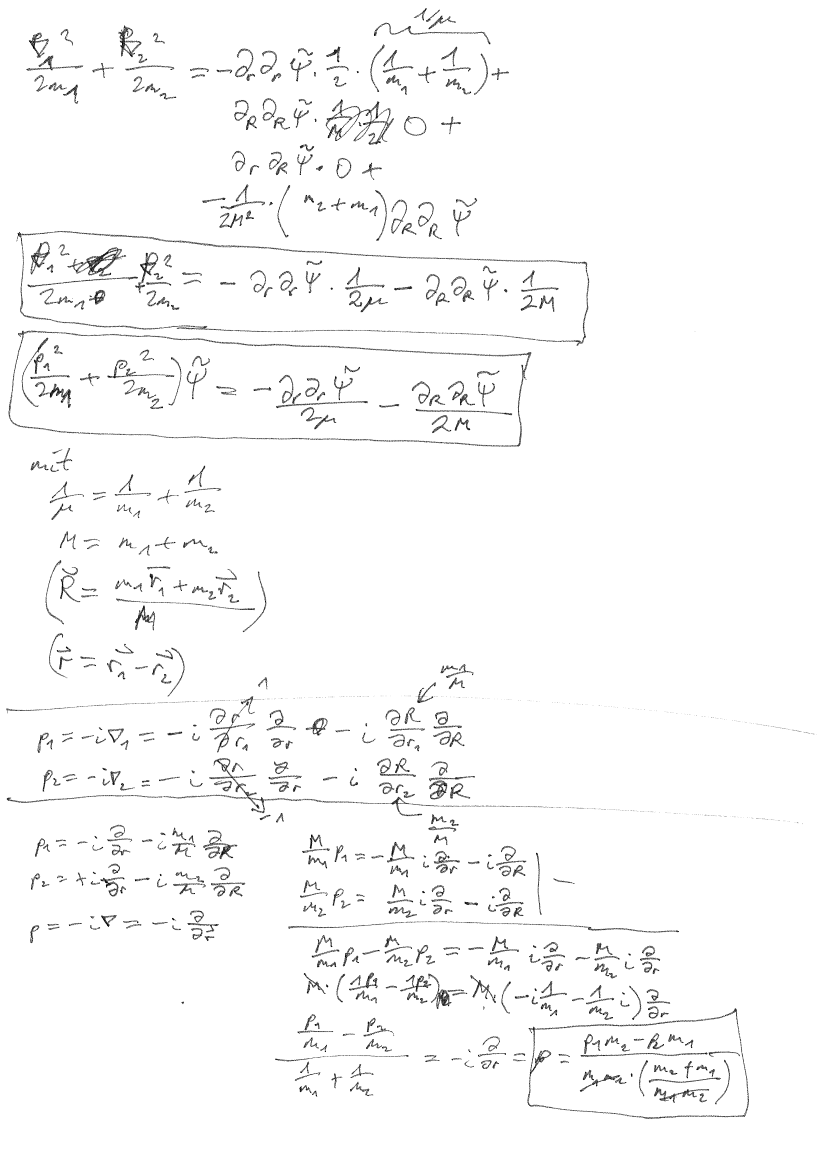 1/μ
∇₁²/2m₁ + p₂²/2m₂ = -∂ᵣ∂ᵣ ψ̃ · 1/2 · (1/m₁ + 1/m₂) +
∂_R ∂_R ψ̃ · 0 +
∂ᵣ ∂_R ψ̃ · 0 +
-1/2M² · (m₂+m₁) ∂_R ∂_R ψ̃
p₁²/2m₁ + p₂²/2m₂ = - ∂ᵣ∂ᵣ ψ̃ · 1/2μ - ∂_R ∂_R ψ̃ · 1/2M
(p₁²/2m₁ + p₂²/2m₂) ψ̃ = - ∂ᵣ∂ᵣ ψ̃/2μ - ∂_R ∂_R ψ̃/2M
mit
1/μ = 1/m₁ + 1/m₂
M = m₁ + m₂
(R⃗ = (m₁r⃗₁ + m₂r⃗₂)/M)
(r⃗ = r⃗₁ - r⃗₂)
1 m₁/M
p₁ = -i∇₁ = -i ∂r/∂r₁ ∂/∂r - i ∂R/∂r₁ ∂/∂R
p₂ = -i∇₂ = -i ∂r/∂r₂ ∂/∂r - i ∂R/∂r₂ ∂/∂R
-1 m₂/M
p₁ = -i ∂/∂r - i m₁/M ∂/∂R
p₂ = +i ∂/∂r - i m₂/M ∂/∂R
p = -i∇ = -i ∂/∂r⃗
M/m₁ p₁ = -M/m₁ i ∂/∂r - i ∂/∂R | -
M/m₂ p₂ = M/m₂ i ∂/∂r - i ∂/∂R
M/m₁ p₁ - M/m₂ p₂ = -M/m₁ i ∂/∂r - M/m₂ i ∂/∂r
M · (1p₁/m₁ - 1p₂/m₂) = M · (-i 1/m₁ - 1/m₂ i) ∂/∂r
(p₁/m₁ - p₂/m₂)/(1/m₁ + 1/m₂) = -i ∂/∂r = p = (p₁m₂ - p₂m₁)/(m₁m₂ · ((m₂+m₁)/(m₁m₂)))